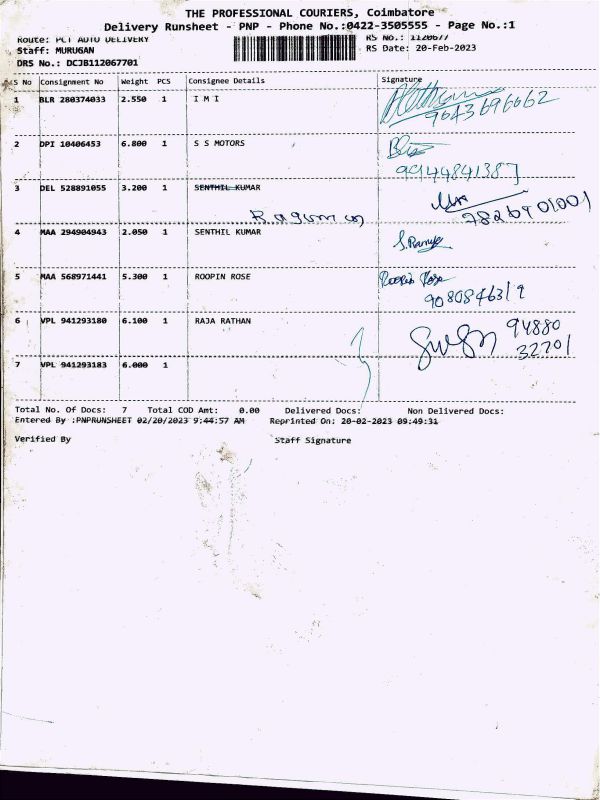 THE PROFESSIONAL COURIERS, Coimbatore
Delivery Runsheet - PNP - Phone No.:0422-3505555 - Page No.:1
Route: PCT AUTO DELIVERY RS No.: 1120677
Staff: MURUGAN RS Date: 20-Feb-2023
DRS No.: DCJB112067701
S No Consignment No Weight PCS Consignee Details Signature
1 BLR 280374033 2.550 1 I M I
9643696662
2 DPI 10406453 6.800 1 S S MOTORS
9944841387
3 DEL 528891055 3.200 1 SENTHIL KUMAR
7826901001
4 MAA 294904943 2.050 1 SENTHIL KUMAR
5 MAA 568971441 5.300 1 ROOPIN ROSE Roopin Rose
9080846319
6 VPL 941293180 6.100 1 RAJA RATHAN 94880
32701
7 VPL 941293183 6.000 1
Total No. Of Docs: 7 Total COD Amt: 0.00 Delivered Docs: Non Delivered Docs:
Entered By :PNPRUNSHEET 02/20/2023 9:44:57 AM Reprinted On: 20-02-2023 09:49:31
Verified By Staff Signature